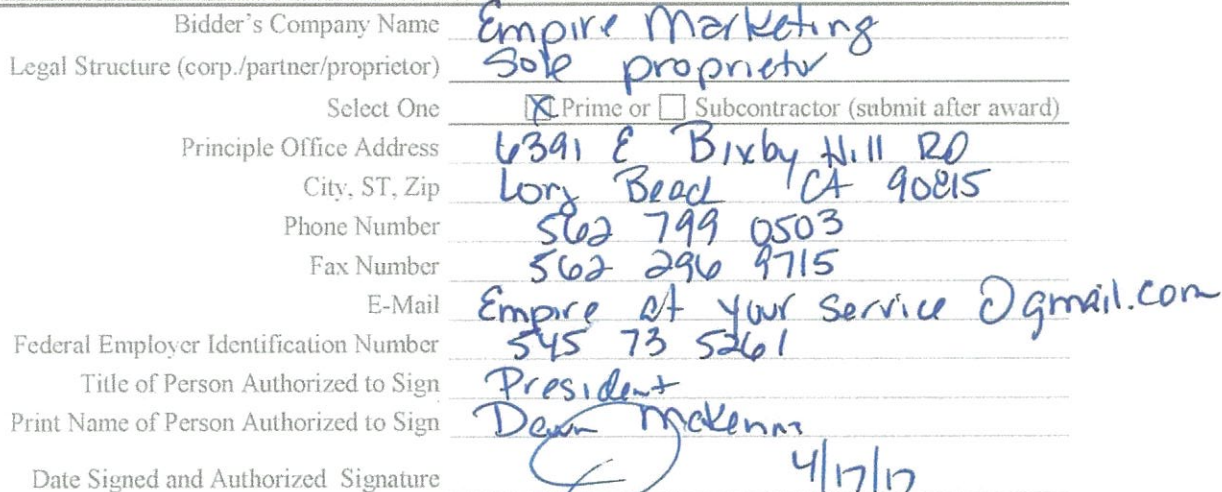 Bidder's Company Name Empire Marketing
Legal Structure (corp./partner/proprietor) Sole proprietor
Select One Prime or Subcontractor (submit after award)
Principle Office Address 6391 E Bixby Hill RD
City, ST, Zip Long Beach CA 90815
Phone Number 562 799 0503
Fax Number 562 296 9715
E-Mail Empire at your service @gmail.com
Federal Employer Identification Number 545 73 5261
Title of Person Authorized to Sign President
Print Name of Person Authorized to Sign Dawn McKenna
Date Signed and Authorized Signature 4/17/17